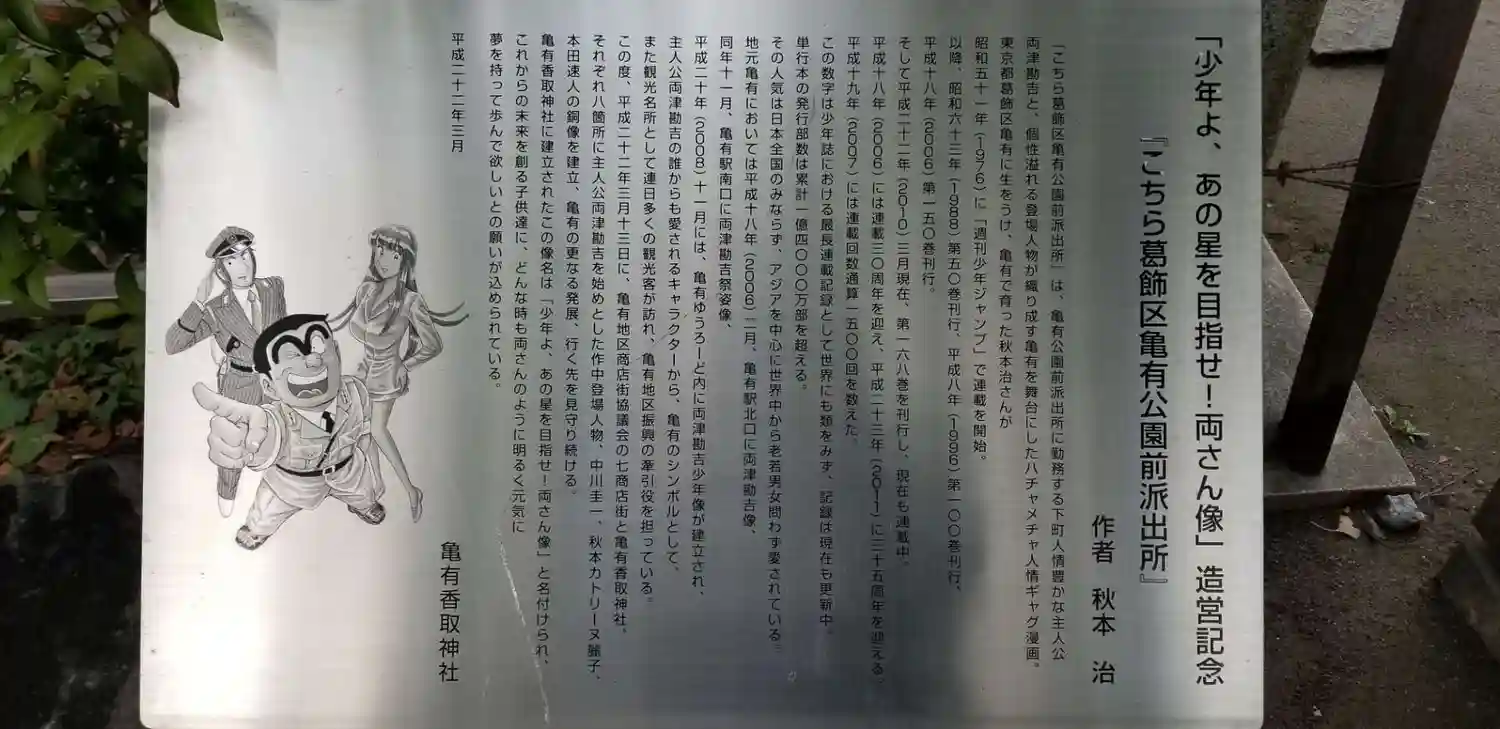 「少年よ、あの星を目指せ！両さん像」造営記念
『こちら葛飾区亀有公園前派出所』
作者 秋本 治
「こちら葛飾区亀有公園前派出所」は、亀有公園前派出所に勤務する下町人情豊かな主人公
両津勘吉と、個性溢れる登場人物が織り成す亀有を舞台にしたハチャメチャ人情ギャグ漫画。
東京都葛飾区亀有に生をうけ、亀有で育った秋本治さんが
昭和五十一年(1976)に「週刊少年ジャンプ」で連載を開始。
以降、昭和六十三年(1988)第五〇巻刊行、平成八年(1996)第一〇〇巻刊行、
平成十八年(2006)第一五〇巻刊行。
そして平成二十二年(2010)三月現在、第一六八巻を刊行し、現在も連載中。
平成十八年(2006)には連載三〇周年を迎え、平成二十三年(2011)に三十五周年を迎える。
平成十九年(2007)には連載回数通算一五〇〇回を数えた。
この数字は少年誌における最長連載記録として世界にも類をみず、記録は現在も更新中。
単行本の発行部数は累計一億四〇〇〇万部を超える。
その人気は日本全国のみならず、アジアを中心に世界中から老若男女問わず愛されている。
地元亀有においては平成十八年(2006)二月、亀有駅北口に両津勘吉像、
同年十一月、亀有駅南口に両津勘吉祭姿像、
平成二十年(2008)十一月には、亀有ゆうろーど内に両津勘吉少年像が建立され、
主人公両津勘吉の誰からも愛されるキャラクターから、亀有のシンボルとして、
また観光名所として連日多くの観光客が訪れ、亀有地区振興の牽引役を担っている。
この度、平成二十二年三月十三日に、亀有地区商店街協議会の七商店街と亀有香取神社。
それぞれ八箇所に主人公両津勘吉を始めとした作中登場人物、中川圭一、秋本カトリーヌ麗子、
本田速人の銅像を建立、亀有の更なる発展、行く先を見守り続ける。
亀有香取神社に建立されたこの像名は「少年よ、あの星を目指せ！両さん像」と名付けられ、
これからの未来を創る子供達に、どんな時も両さんのように明るく元気に
夢を持って歩んで欲しいとの願いが込められている。
平成二十二年三月
亀有香取神社